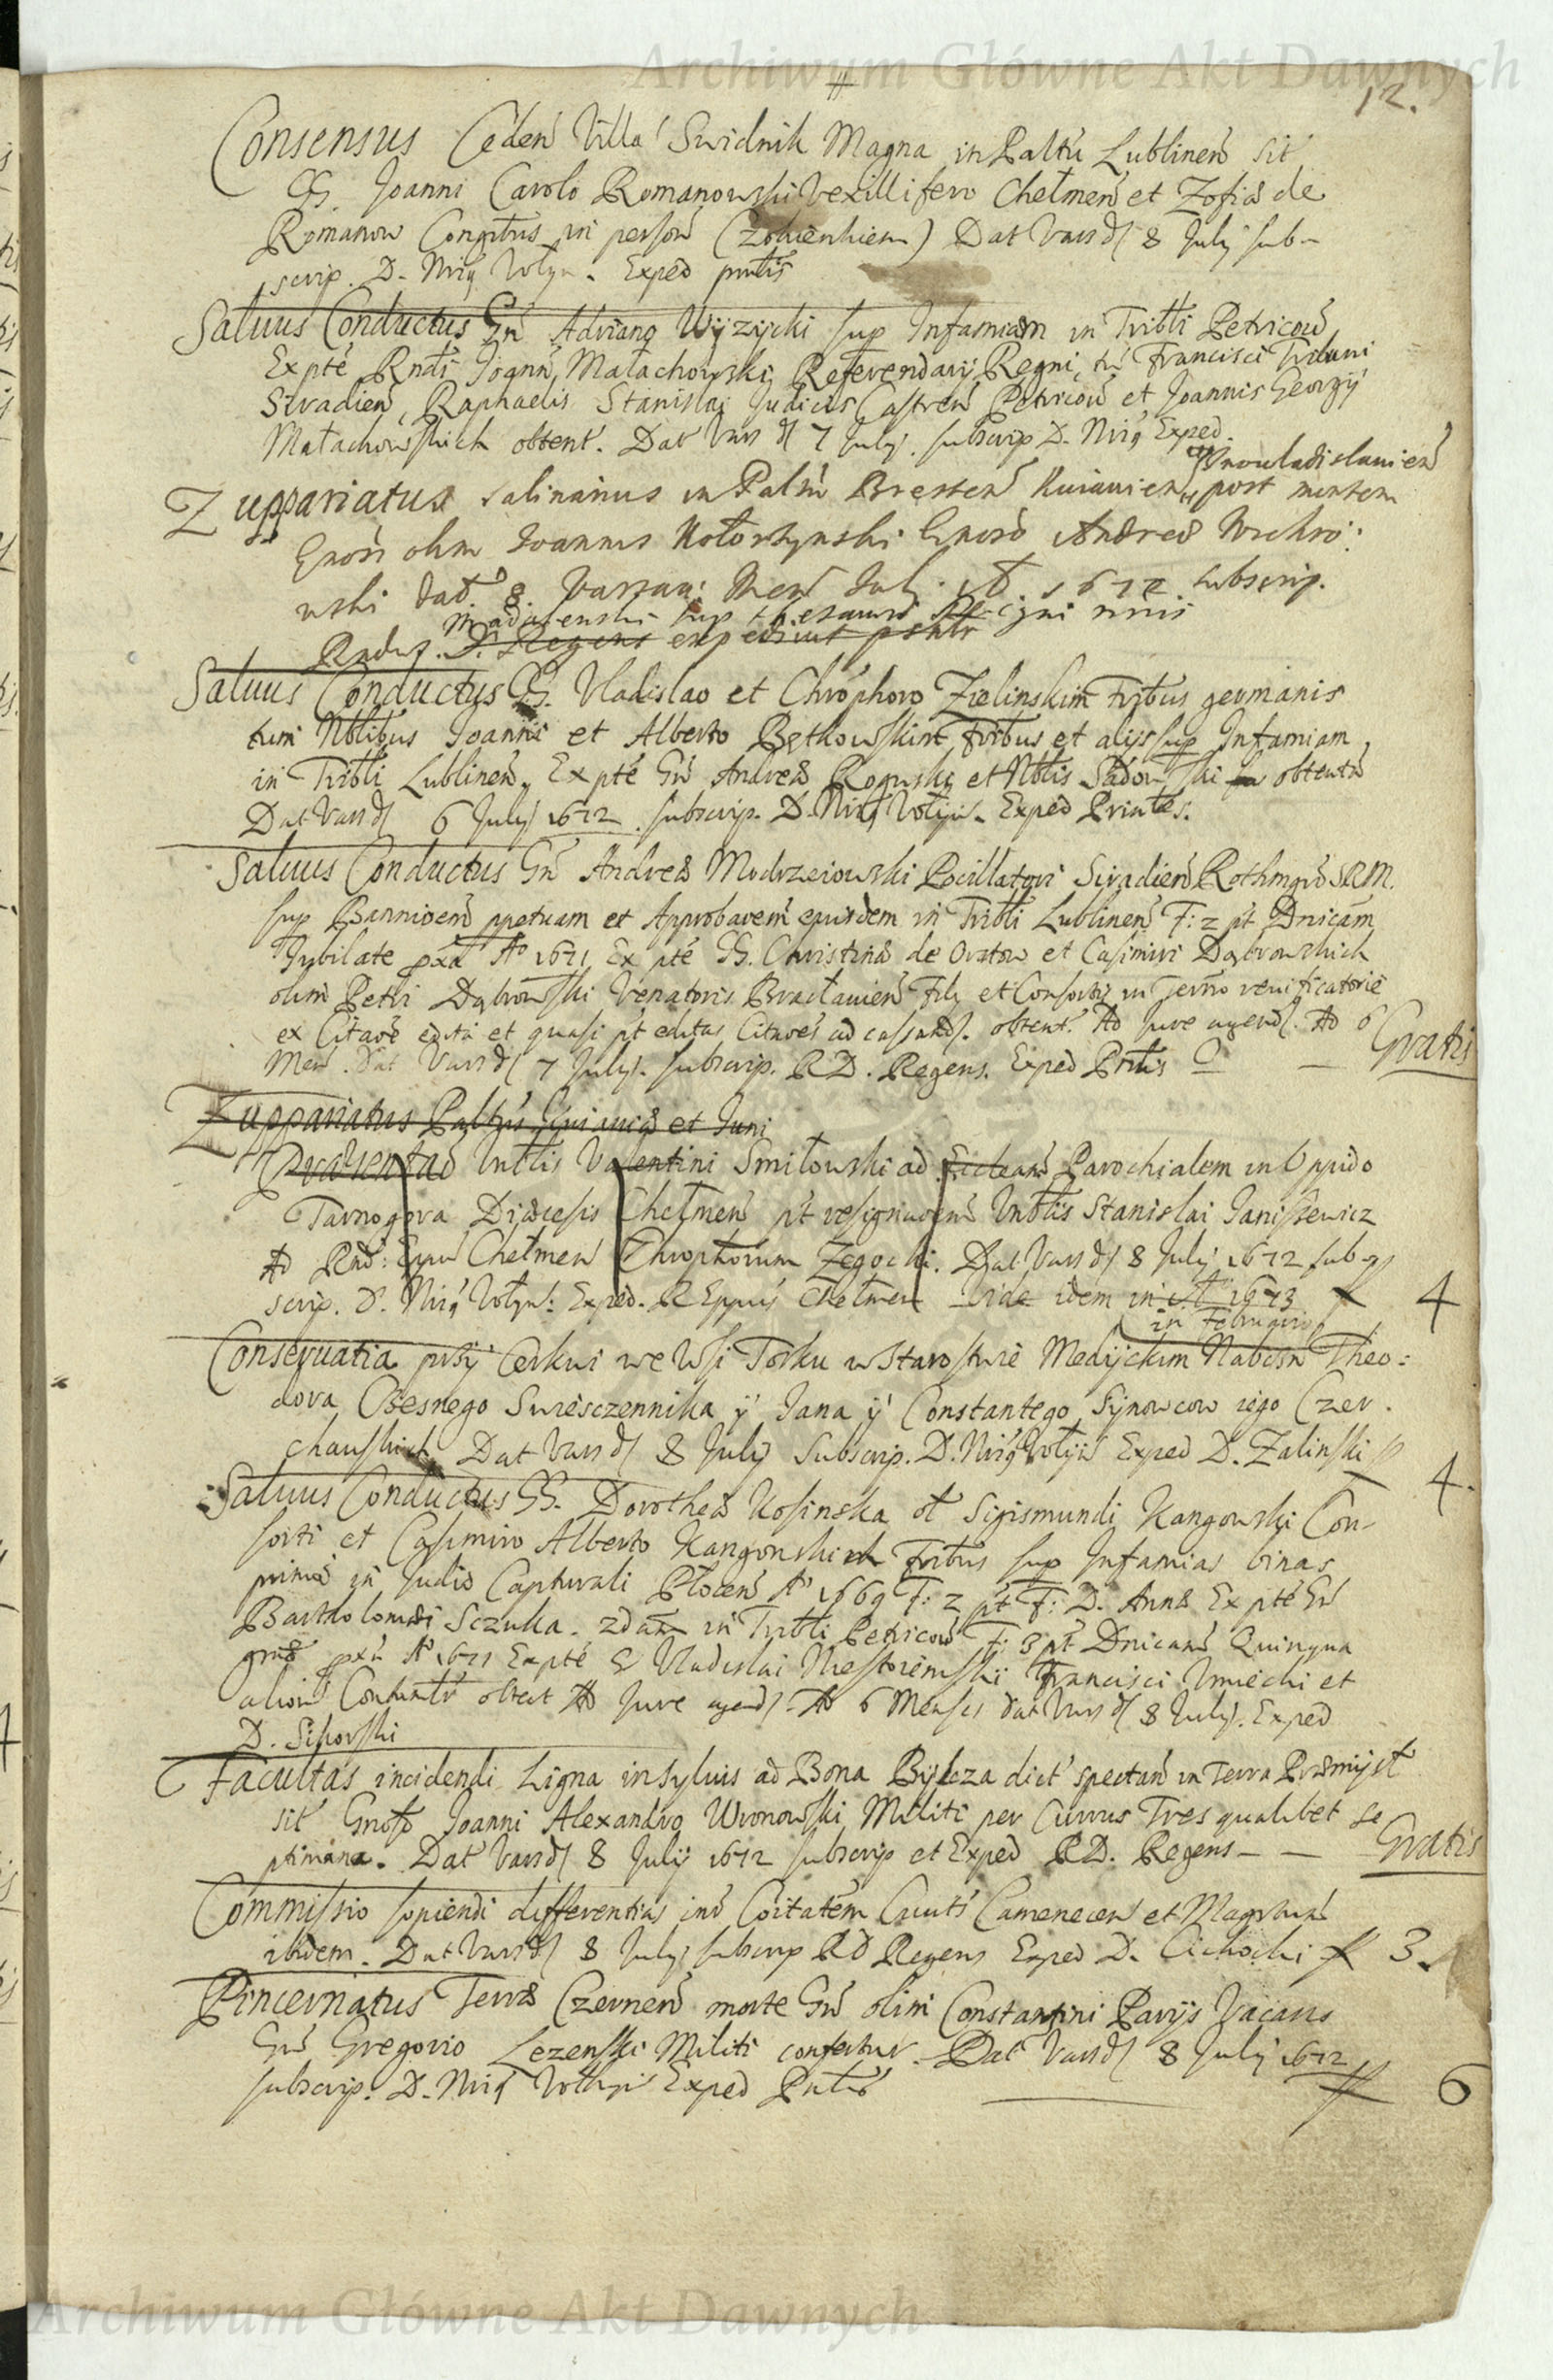 Archiwum Główne Akt Dawnych
12.
Consensus Ceden Villa Swidnik Magna in Paltu Lublinen sit
GG. Joanni Carolo Romanowski Vexillifero Chełmen et Zofiæ de
Romanow Congitus in person (Zohienkiem) Dat Vars d 8 July sub-
scrip. D. Nrig Wołyn. Exped pntis
Saluus Conductus Gn Adriano Wyzycki sup Infamiam in Tribli Petricou
Expte Rndi Joann Małachowski Referendary Regni, tu Francisci Tribuni
Siradien, Raphaelis Stanislai Judicis Castren Petricou et Joannis Georgy
Małachowskich obtent. Dat Vars d 7 July. subscrip D. Nrig Exped
Wnouladislauien
Zuppariatus salinarius in Paltu Bresten Kuiauien et post mortem
Gnosi olim Joannis Kołorzynski Gnoso Andreæ Wrchro:
wski dat 8. Varsau: Men Jul. A. 1672 subscrip.
Madalenski sup thesauri Regni nris
Radus. D. Regens expediuit psntr
Saluus Conductus GG. Vladislao et Chrophoro Zielinskim frbus germanis
tum Nblibus Joanni et Alberto Bętkowskim frbus et alijs sup Infamiam
in Tribli Lublinen, Expte Gn Andreæ Rogusky et Nblis Sadowski obtenta
Dat Vars d 6 July 1672. subscrip. D. Nrig Wołyn. Exped Printes.
Saluus Conductus Gn Andreæ Modrzeiowski Pocillatori Siradien Rothmgro SRM.
sup Bannioem ppetuam et Approbaoem eiusdem in Tribli Lublinen F: 2 pt Dnicam
Jubilate pxa A° 1671 Expte GG. Christinæ de Orztow et Casimiri Dąbrowskich
olim Petri Dąbrowski Venatoris Bracłauien Fily et Consortis in Termo verificatorie
ex Citaoe edita et quasi pt editas Citaoes ad cassand. obtent. Ad Jure agend. Ad 6
Men. Dat Vars d 7 July. subscrip. RD. Regens. Exped Prntis — Gratis
Zuppariatus Paltus Cuiauiæ et Juni
Præsentao Vnblis Valentini Smiłowski ad Eccleam Parochialem in Oppido
Tarnogora Diæcesis Chełmen pt resignaoem Vnblis Stanislai Janiszewicz
Ad Rnd: Eppum Chełmen Chrophorum Zegocki. Dat Vars d 8 July 1672 sub-
scrip. D. Nrig Wołyn: Exped. R Eppus Chełmen Vide idem in A° 1673 4
in Februario
Conseruatia przy Cerkwi we Wsi Torku w Starostwie Medyckim Nabożn Theo:
dora Czesnego Swiesczennika y Jana y Constantego Synowcow iego Czer.
chauskich Dat Vars d 8 July Subscrip. D. Nrig Wołyn Exped D. Zalinski 4.
Saluus Conductus GG. Dorotheæ Kosinska ol Sigismundi Kangowski Con-
sorti et Casimiro Alberto Kangowskich frbus sup Infamias binas
primā in Judio Capturali Płocen A° 1669 F: 2 pt F: D. Annæ Expte Gn
Bartholomæi Sczuka. 2dam in Tribli Petricou F: 3 pt Dnicam Quinqua
gmæ pxa A° 1671 Expte G Vladislai Niestoiemski Francisci Vmiechi et
alior Contentr obtent Ad Jure agend. Ad 6 Menses dat Vars d 8 July. Exped
D. Sikorski
Facultas incidendi Ligna in syluis ad Bona Bylcza dict spectan in Terra Præmysl
sit Gnoso Joanni Alexandro Wronowski Militi per Currus Tres qualibet se
ptimana. Dat Vars d 8 July 1672 subscrip et Exped RD. Regens — — Gratis
Commissio sopiendi differentias int Coitatem Ciuits Camenecen et Magratum
ibidem. Dat Vars d 8 July subscrip RD Regens Exped D. Cichocki 3.
Pincernatus Terræ Czernen morte Gn olim Constantini Parys Vacans
Gno Gregorio Lezenski Militi confertur. Dat Vars d 8 July 1672
subscrip. D. Nrig Wołyn Exped Pntes 6
Archiwum Główne Akt Dawnych